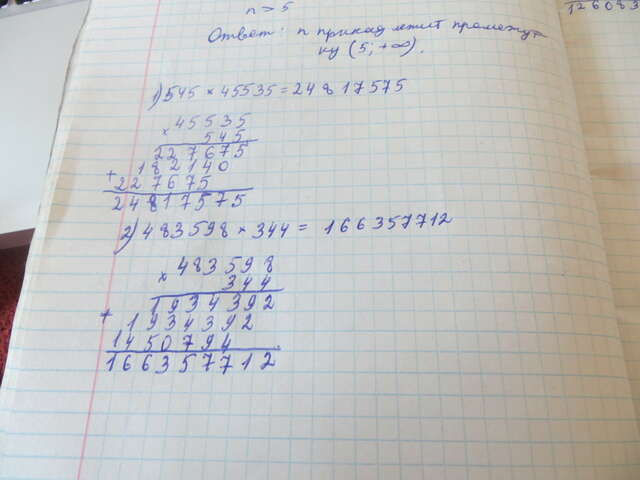 n > 5
126083
Ответ: n принадлежит промежут
ку (5; +∞).
1) 545 × 45535 = 24817575
45535
× 545
227675
182140
+ 227675
24817575
2) 483598 × 344 = 166357712
483598
× 344
1934392
+ 1934392
1450794
166357712